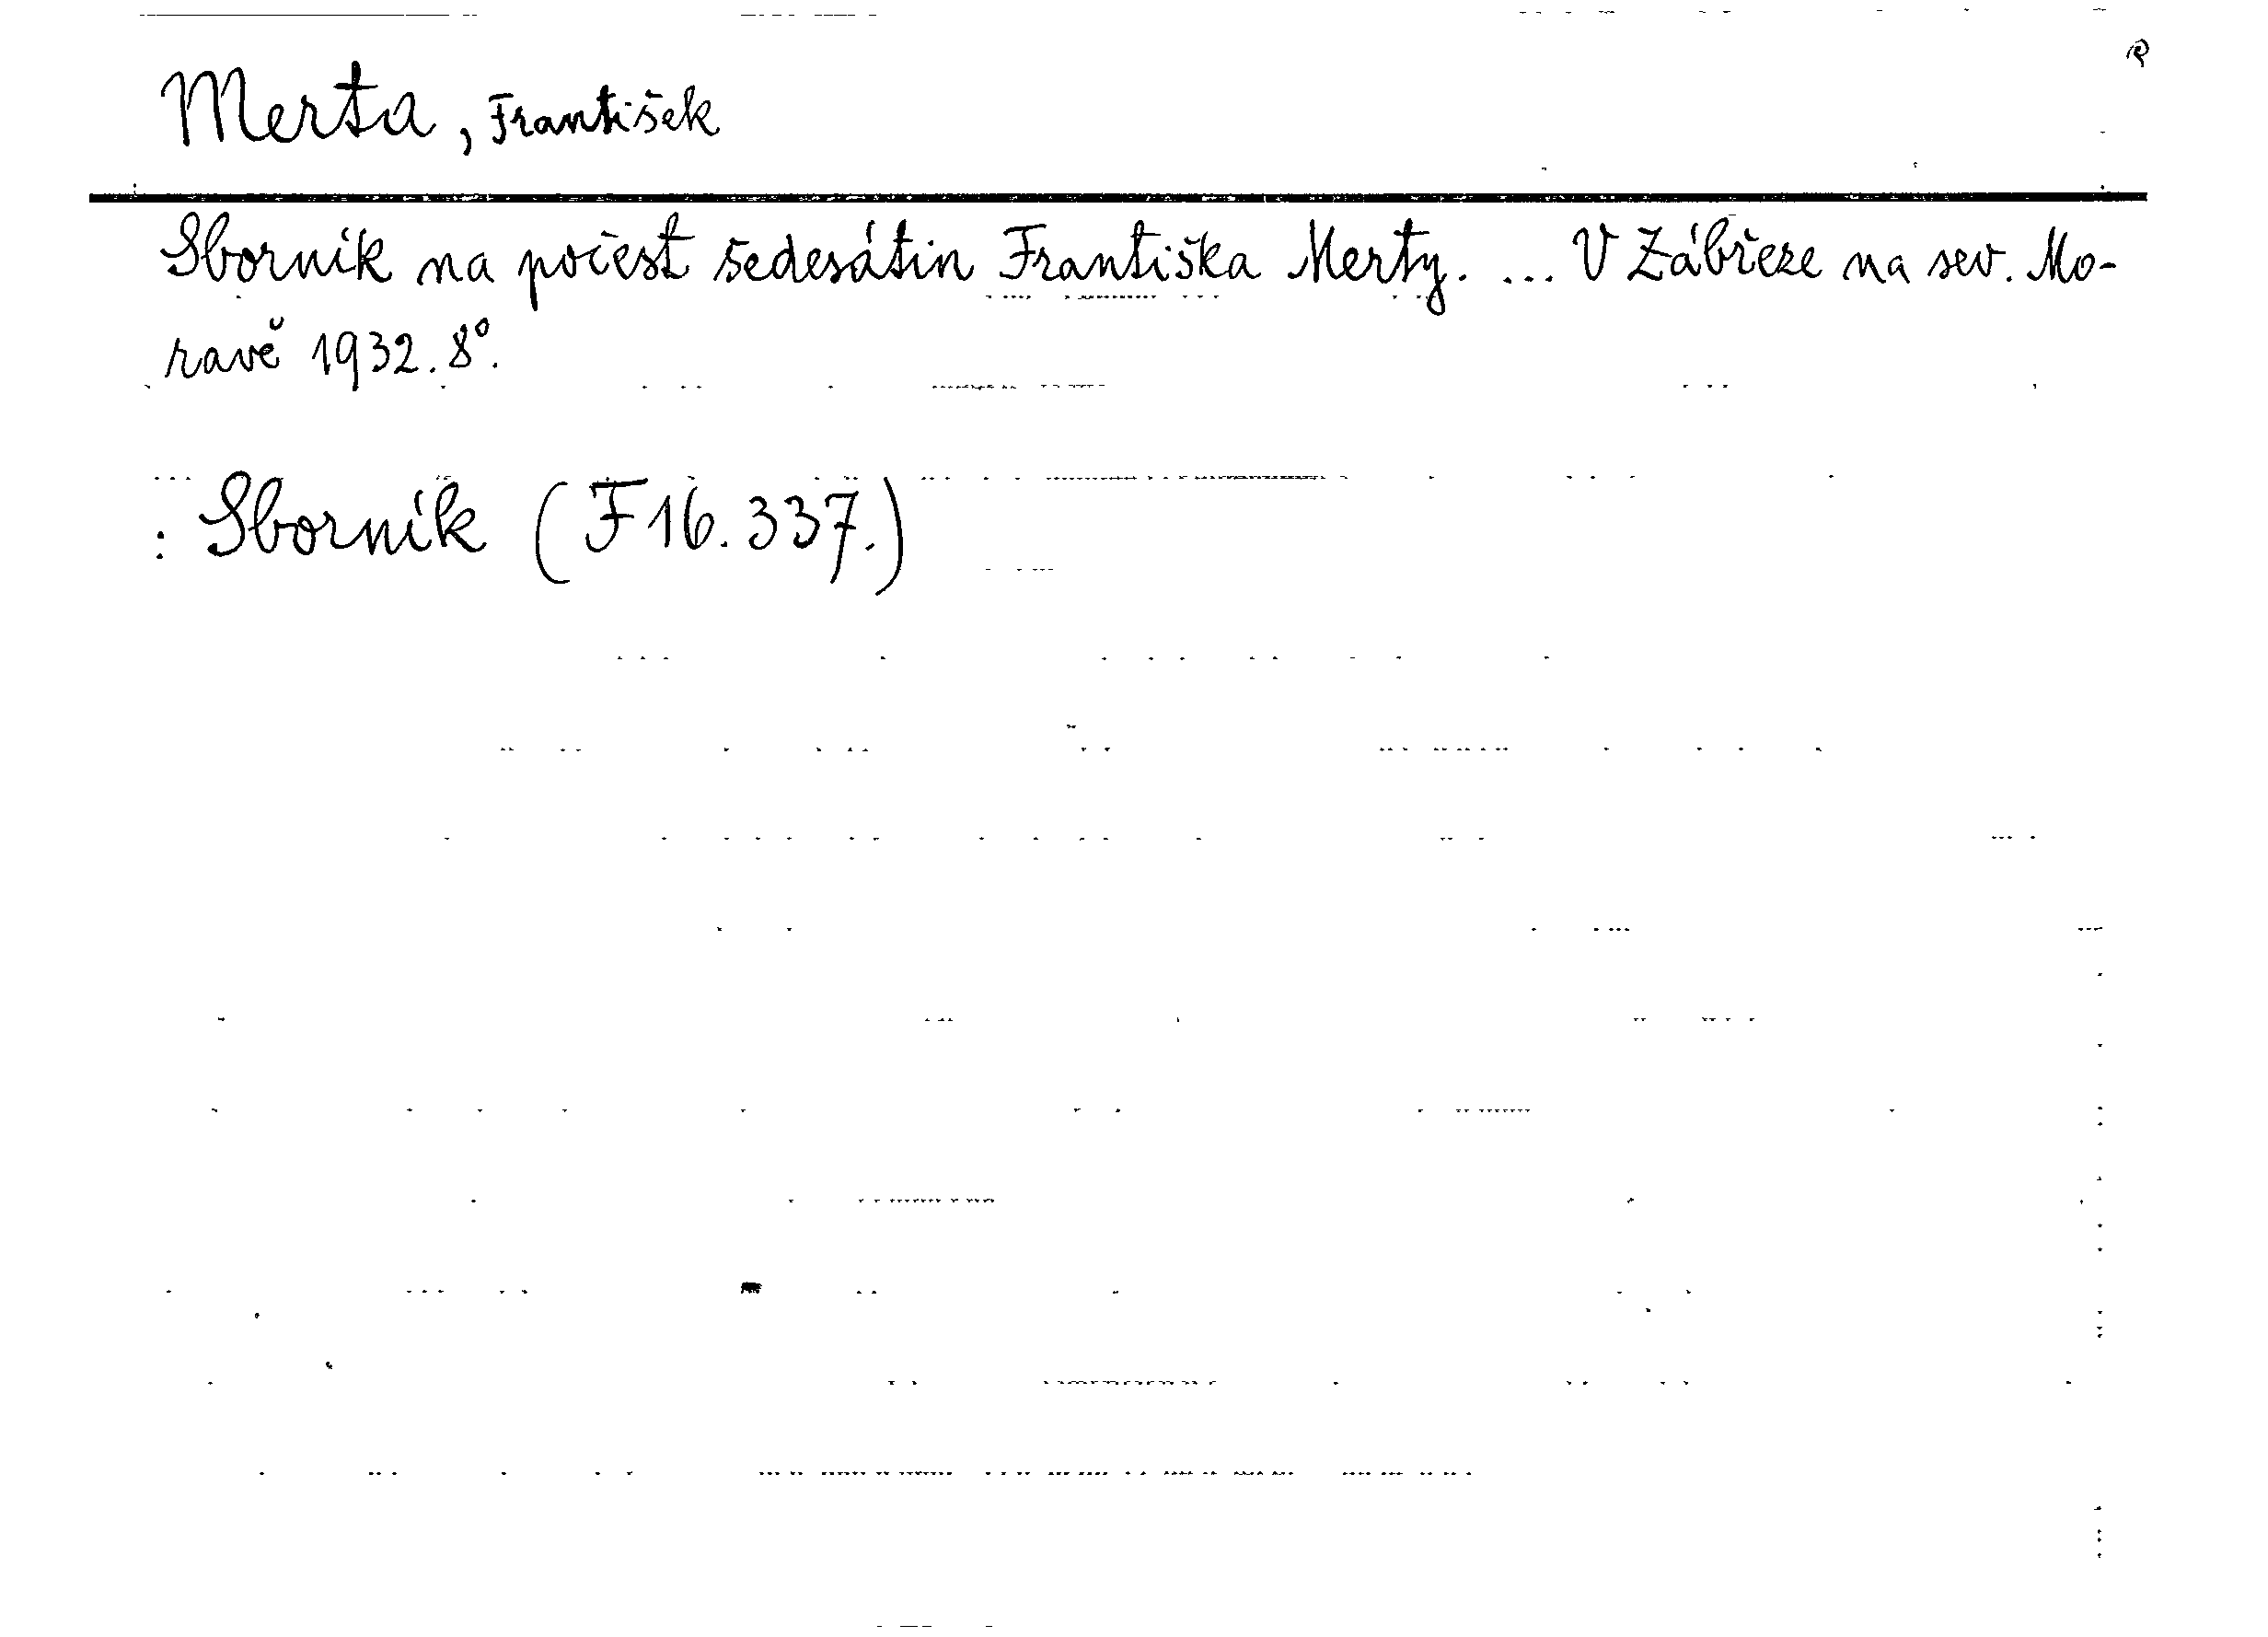 R
Merta, František
Sborník na počest šedesátin Františka Merty. ... V Zábřeze na sev. Mo-
ravě 1932. 8°.
: Sborník (F 16.337.)